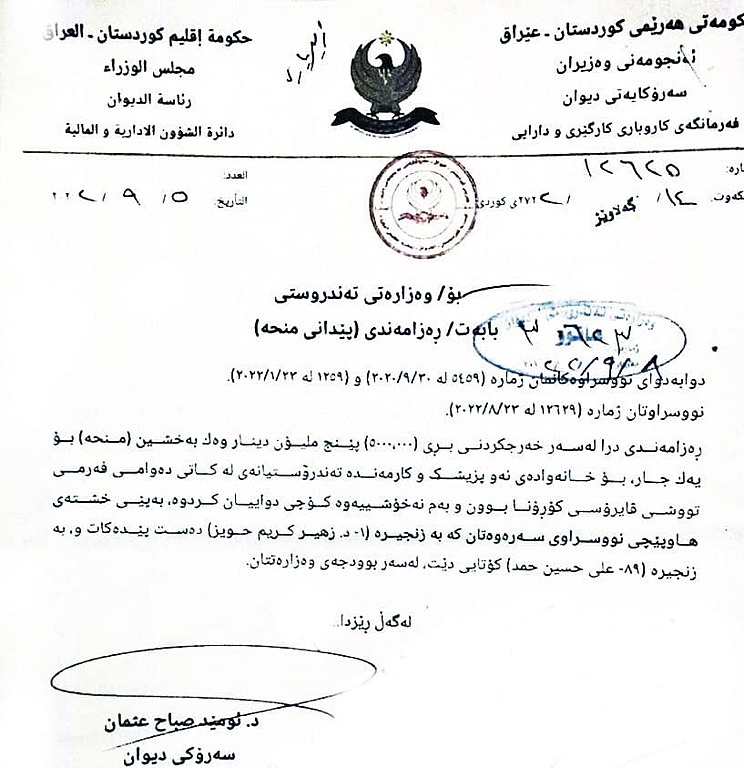 حكومەتی هەرێمی كوردستان - عێراق
ئەنجومەنی وەزیران
سەرۆكایەتی دیوان
فەرمانگەی كاروباری كارگێری و دارایی
حكومة إقليم كوردستان - العراق
مجلس الوزراء
رئاسة الديوان
دائرة الشؤون الادارية و المالية
ژمارە: ١٢٦٢٥
ڕێكەوت: ١٤ / گەلاوێژ / ٢٧٢٢ی كوردی
العدد:
التأريخ: ٥ / ٩ / ٢٠٢٢
بۆ/ وەزارەتی تەندروستی
بابەت/ ڕەزامەندی (پێدانی منحە)
دوابەدوای نووسراوەكانمان ژمارە (٥٤٥٩ لە ٢٠٢٠/٩/٣٠) و (١٢٥٩ لە ٢٠٢٢/١/٢٣).
نووسراوتان ژمارە (١٢٦٢٩ لە ٢٠٢٢/٨/٢٣).
ڕەزامەندی درا لەسەر خەرجكردنی بڕی (٥٠٠٠,٠٠٠) پێنج ملیۆن دینار وەك بەخشین (منحە) بۆ
یەك جار، بۆ خانەوادەی ئەو پزیشك و كارمەندە تەندرۆستیانەی لە كاتی دەوامی فەرمی
تووشی ڤایرۆسی كۆڕۆنا بوون و بەم نەخۆشییەوە كۆچی دواییان كردوە، بەپێی خشتەی
هاوپێچی نووسراوی سەرەوەتان كە بە زنجیرە (١- د. زهیر كریم حویز) دەست پێدەكات و، بە
زنجیرە (٨٩- علی حسین حمد) كۆتایی دێت، لەسەر بوودجەی وەزارەتتان.
لەگەڵ ڕێزدا..
د. ئومێد صباح عثمان
سەرۆكی دیوان